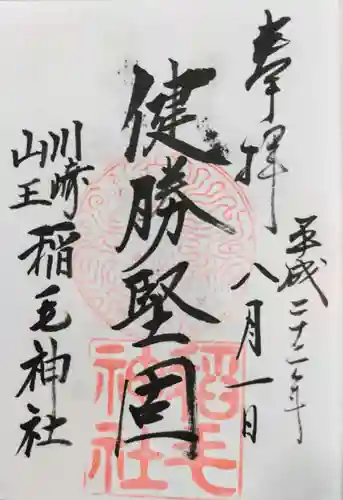 奉拝
平成二十二年
八月一日
健勝堅固
川崎
山王
稲毛神社
稲毛
神社